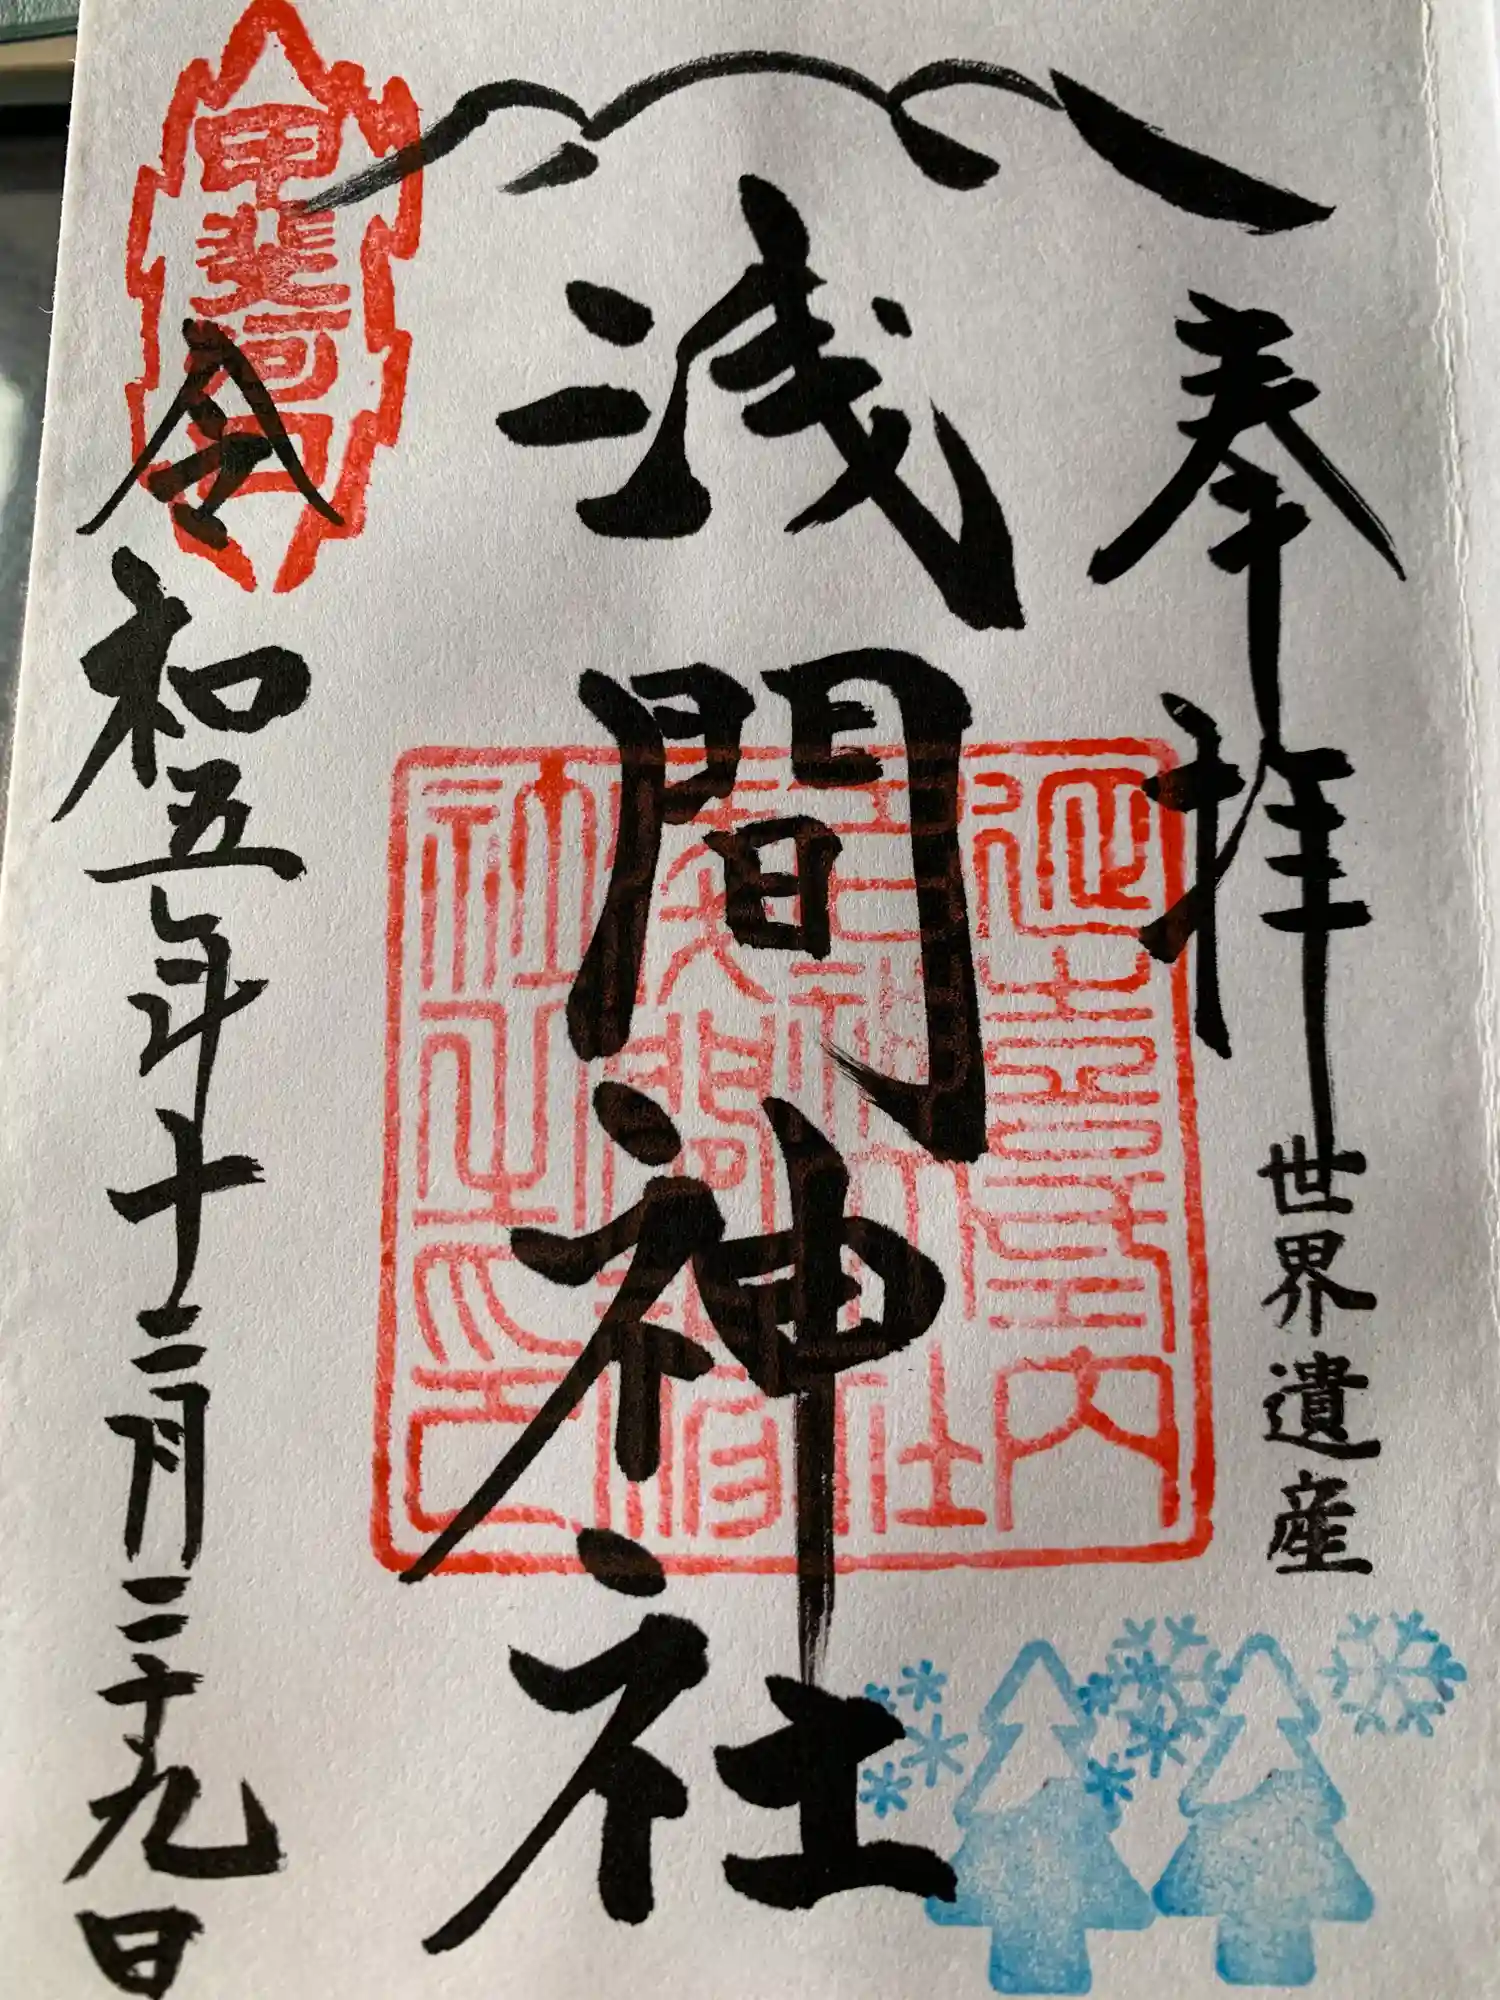 奉拝
世界遺産
浅間神社
延喜式内
社之印
甲斐河口
令和五年十二月二十九日